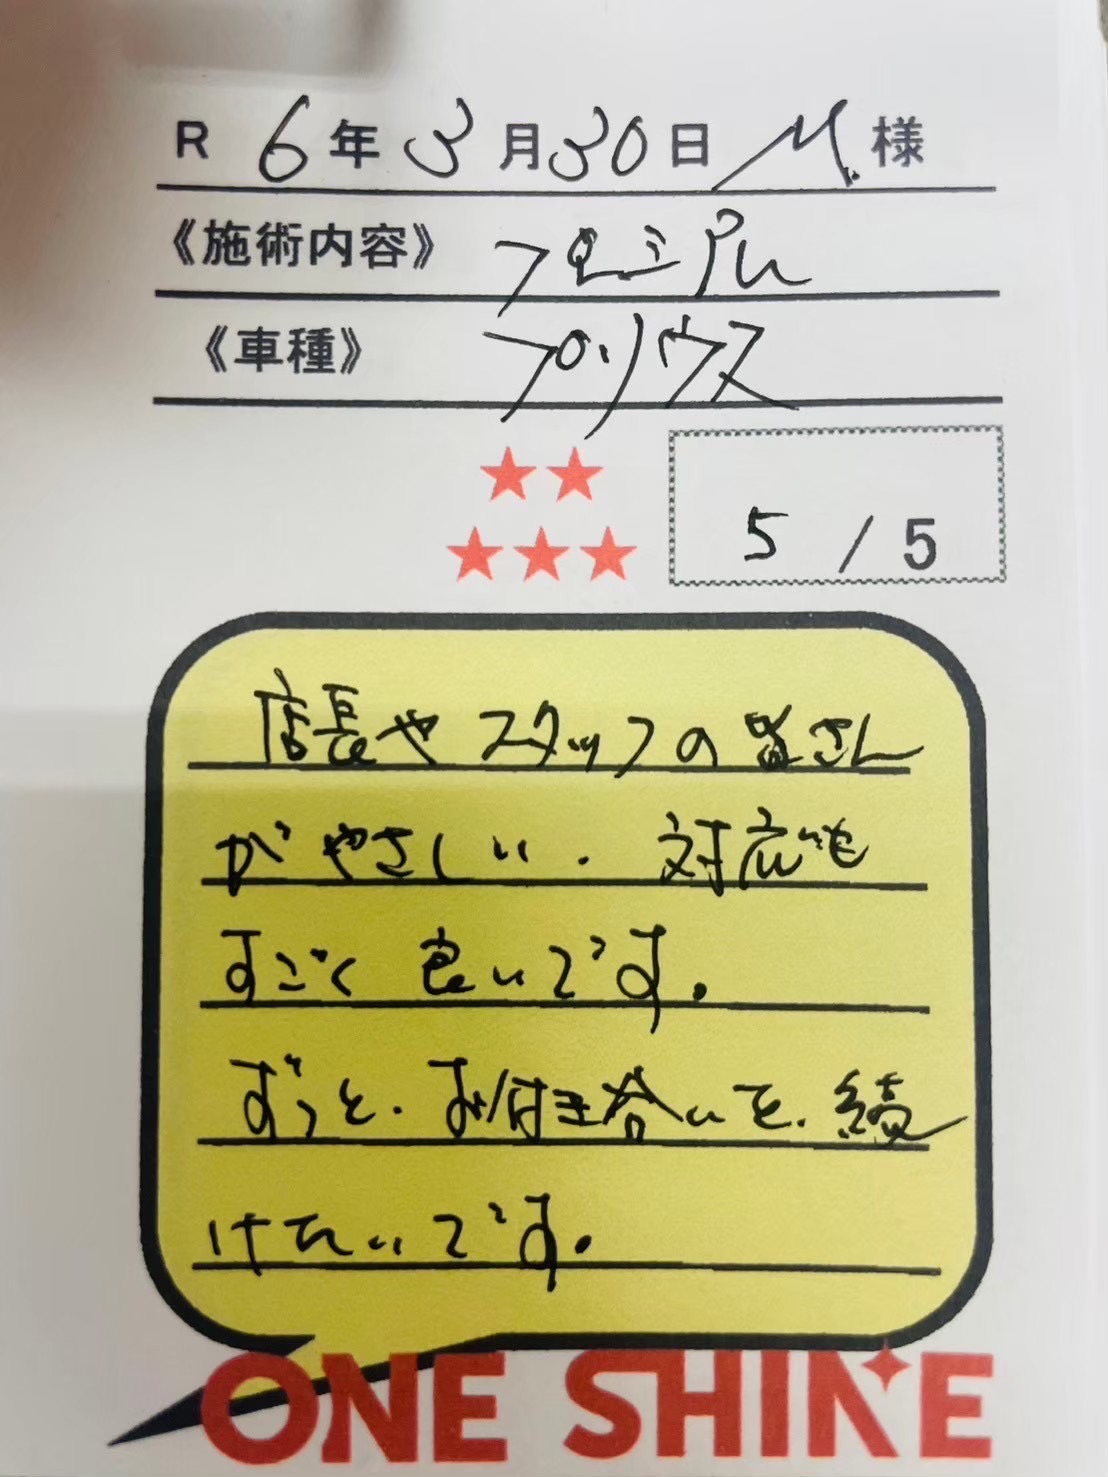 R 6年3月30日 M.様
《施術内容》 プレミアム
《車種》 プリウス
5 / 5
店長やスタッフの皆さん
がやさしい.対応も
すごく良いです.
ずっと.お付き合いを.続
けたいです.
ONE SHINE